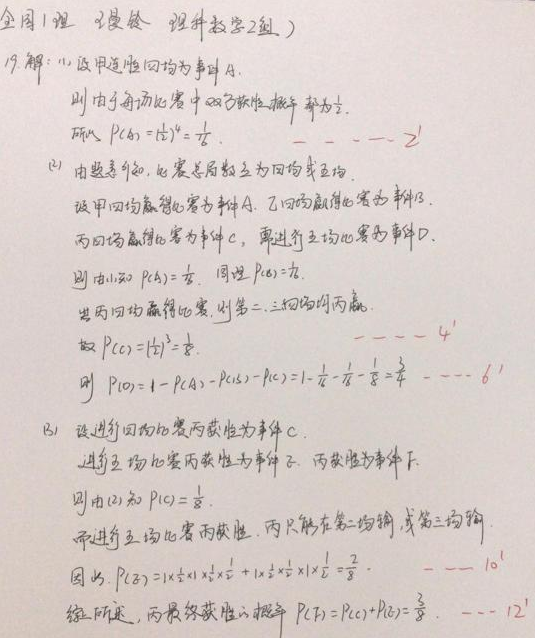 全国1理 理科数学2组）
19.解：(1) 设甲连胜四场为事件A.
则由于每场比赛中双方获胜概率都为1/2.
所以 P(A)=(1/2)^4=1/16. - - - - - 2'
(2) 由题意可知，比赛总局数应为四场或五场.
设甲四场赢得比赛为事件A. 乙四场赢得比赛为事件B.
丙四场赢得比赛为事件C，需进行五场比赛为事件D.
则由(1)知 P(A)=1/16. 同理P(B)=1/16.
当丙四场赢得比赛，则第二、三、四场均丙赢.
故 P(C)=(1/2)^3=1/8. - - - - 4'
则 P(D)=1-P(A)-P(B)-P(C)=1-1/16-1/16-1/8=3/4 - - - - 6'
(3) 设进行四场比赛丙获胜为事件C.
进行五场比赛丙获胜为事件E. 丙获胜为事件F.
则由(2)知 P(C)=1/8.
而进行五场比赛丙获胜，丙只能在第二场输，或第三场输
因此. P(E)=1×1/2×1×1/2×1/2+1×1/2×1/2×1×1/2=2/8. - - - 10'
综上所述，丙最终获胜的概率 P(F)=P(C)+P(E)=3/8. - - - 12'